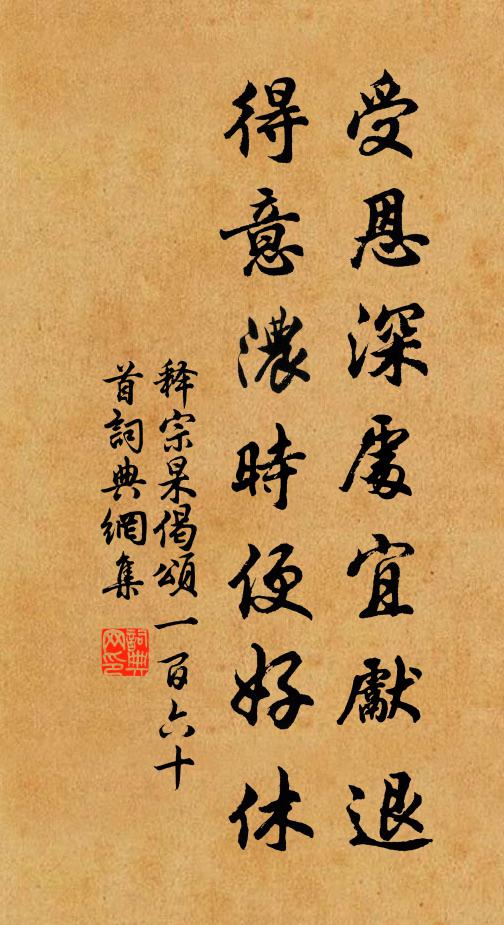 受恩深處宜獻退
得意濃時便好休
释宗杲偈頌一百六十
首詞典網集
詞典网印